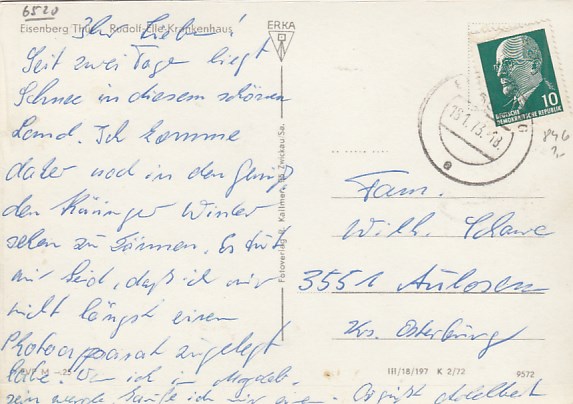 6520
Eisenberg Thür., Rudolf-Elle-Krankenhaus
ERKA
Ihr Lieben!
Seit zwei Tage liegt
Schnee in diesem schönen
Land. Ich komme
daher noch in den Genuß
den Winter
sehen zu können. Es tut
mir Leid, daß ich mir
nicht längst einen
Photoapparat zugelegt
habe. Wenn ich in Magdeb.
sein werde, kaufe ich mir einen.
Fotoverlag R. Kallmer, Zwickau/Sa.
10
DEUTSCHE
DEMOKRATISCHE REPUBLIK
Fam.
Wilh.
3551 Aulosen
Krs. Osterburg
III/18/197 K 2/72
9572